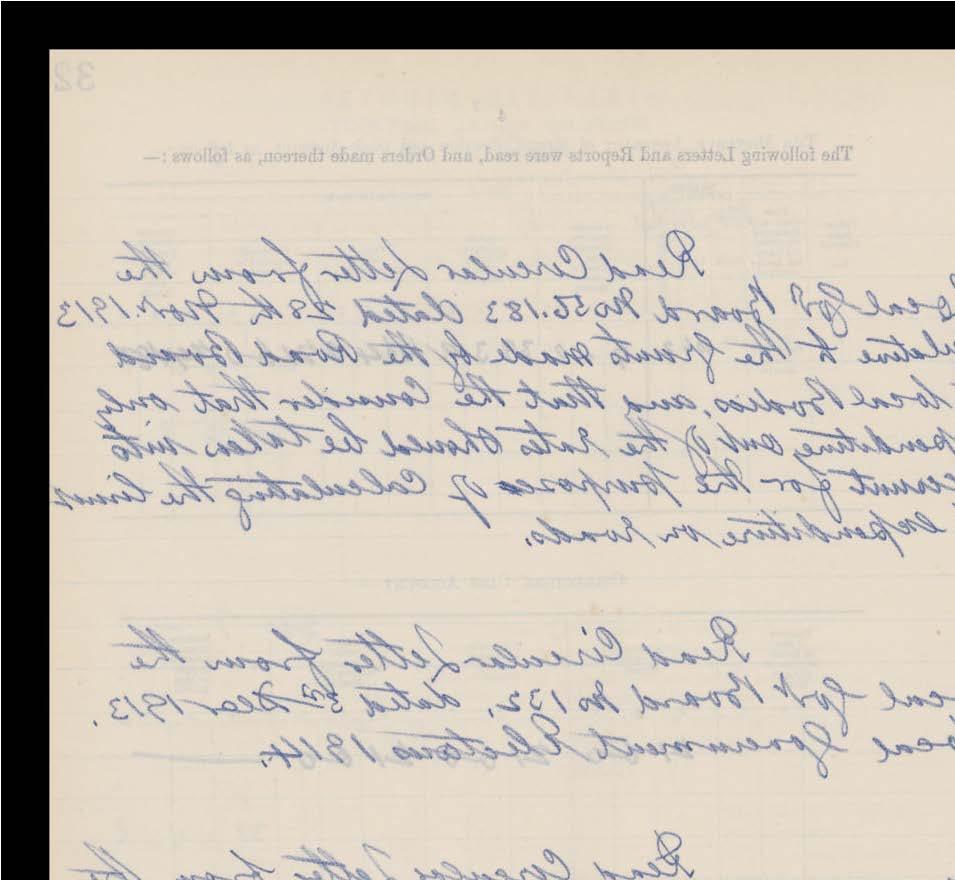 32
4
The following Letters and Reports were read, and Orders made thereon, as follows :—
Read Circular Letter from the
ocal Govt Board No 56.183 dated 28th Novr. 1913
elative to the Grants made by the Road Board
to local Bodies, and that the Consider that only
penditure out of the rates should be taken into
ccount for the purposes of Calculating the limit
expenditure on roads.
Read Circular Letter from the
ocal Govt Board No 132, dated 3rd Decr 1913.
ocal Government Elections 1914.
Read Circular Letter from the